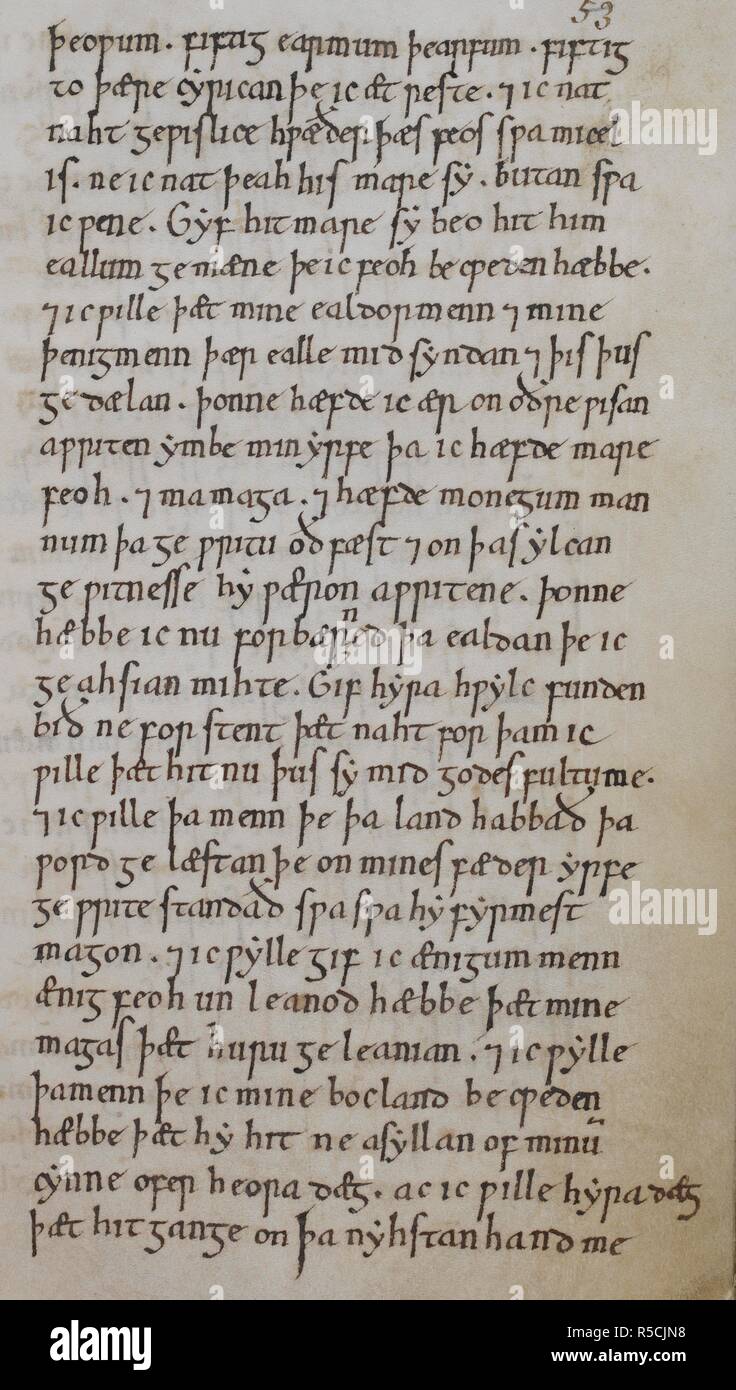 53
þeoƿum · fiftig earmum þearfum · fiftig
to þære cẏrican þe ic æt reste · ⁊ ic nat
naht geƿislice hƿæðer þæs feos sƿa micel
is · ne ic nat þeah his mare sẏ · butan sƿa
ic ƿene · Gẏf hit mare sẏ beo hit him
eallum gemæne þe ic feoh becƿeten hæbbe ·
⁊ ic ƿille þæt mine ealdormenn ⁊ mine
þenigmenn þær ealle mid sẏndan ⁊ þis þus
gedælan · þonne hæfde ic ær on oðre ƿisan
aƿriten ẏmbe min ẏrfe þa ic hæfde mare
feoh · ⁊ ma maga · ⁊ hæfde monegum man
num þa geƿritu oðfæst ⁊ on þas ẏlcan
geƿitnesse hẏ ƿæron aƿritene · þonne
hæbbe ic nu forbærned þa ealdan þe ic
n
geahsian mihte · Gif hẏra hƿẏlc funden
bið ne forstent þæt naht forþam ic
ƿille þæt hit nu þus sẏ mid godes fultume ·
⁊ ic ƿille þa menn þe þa land habbað þa
ƿord gelæstan þe on mines fæder ẏrfe
geƿrite standað sƿa sƿa hẏ fẏrmest
magon · ⁊ ic ƿẏlle gif ic ænigum menn
ænig feoh unleanod hæbbe þæt mine
magas þæt huru geleanian · ⁊ ic ƿẏlle
þa menn þe ic mine bocland becƿeden
hæbbe þæt hẏ hit ne asẏllan of minū
cẏnne ofer heora dæg · ac ic ƿille hẏra dæg
þæt hit gange on þa nẏhstan hand me
alamy
a
alamy
Image ID: R5CJN8
www.alamy.com